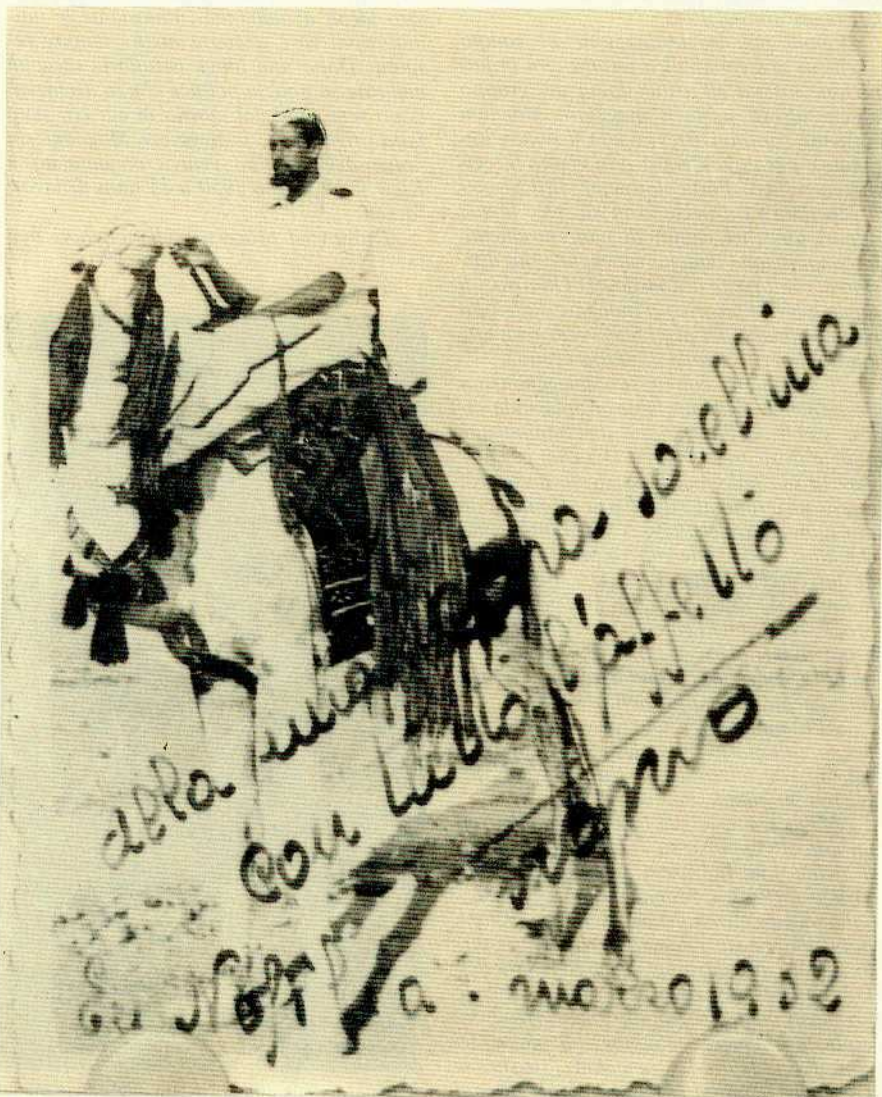 alla mia cara sorellina
con tutto l'affetto
marzo 1932